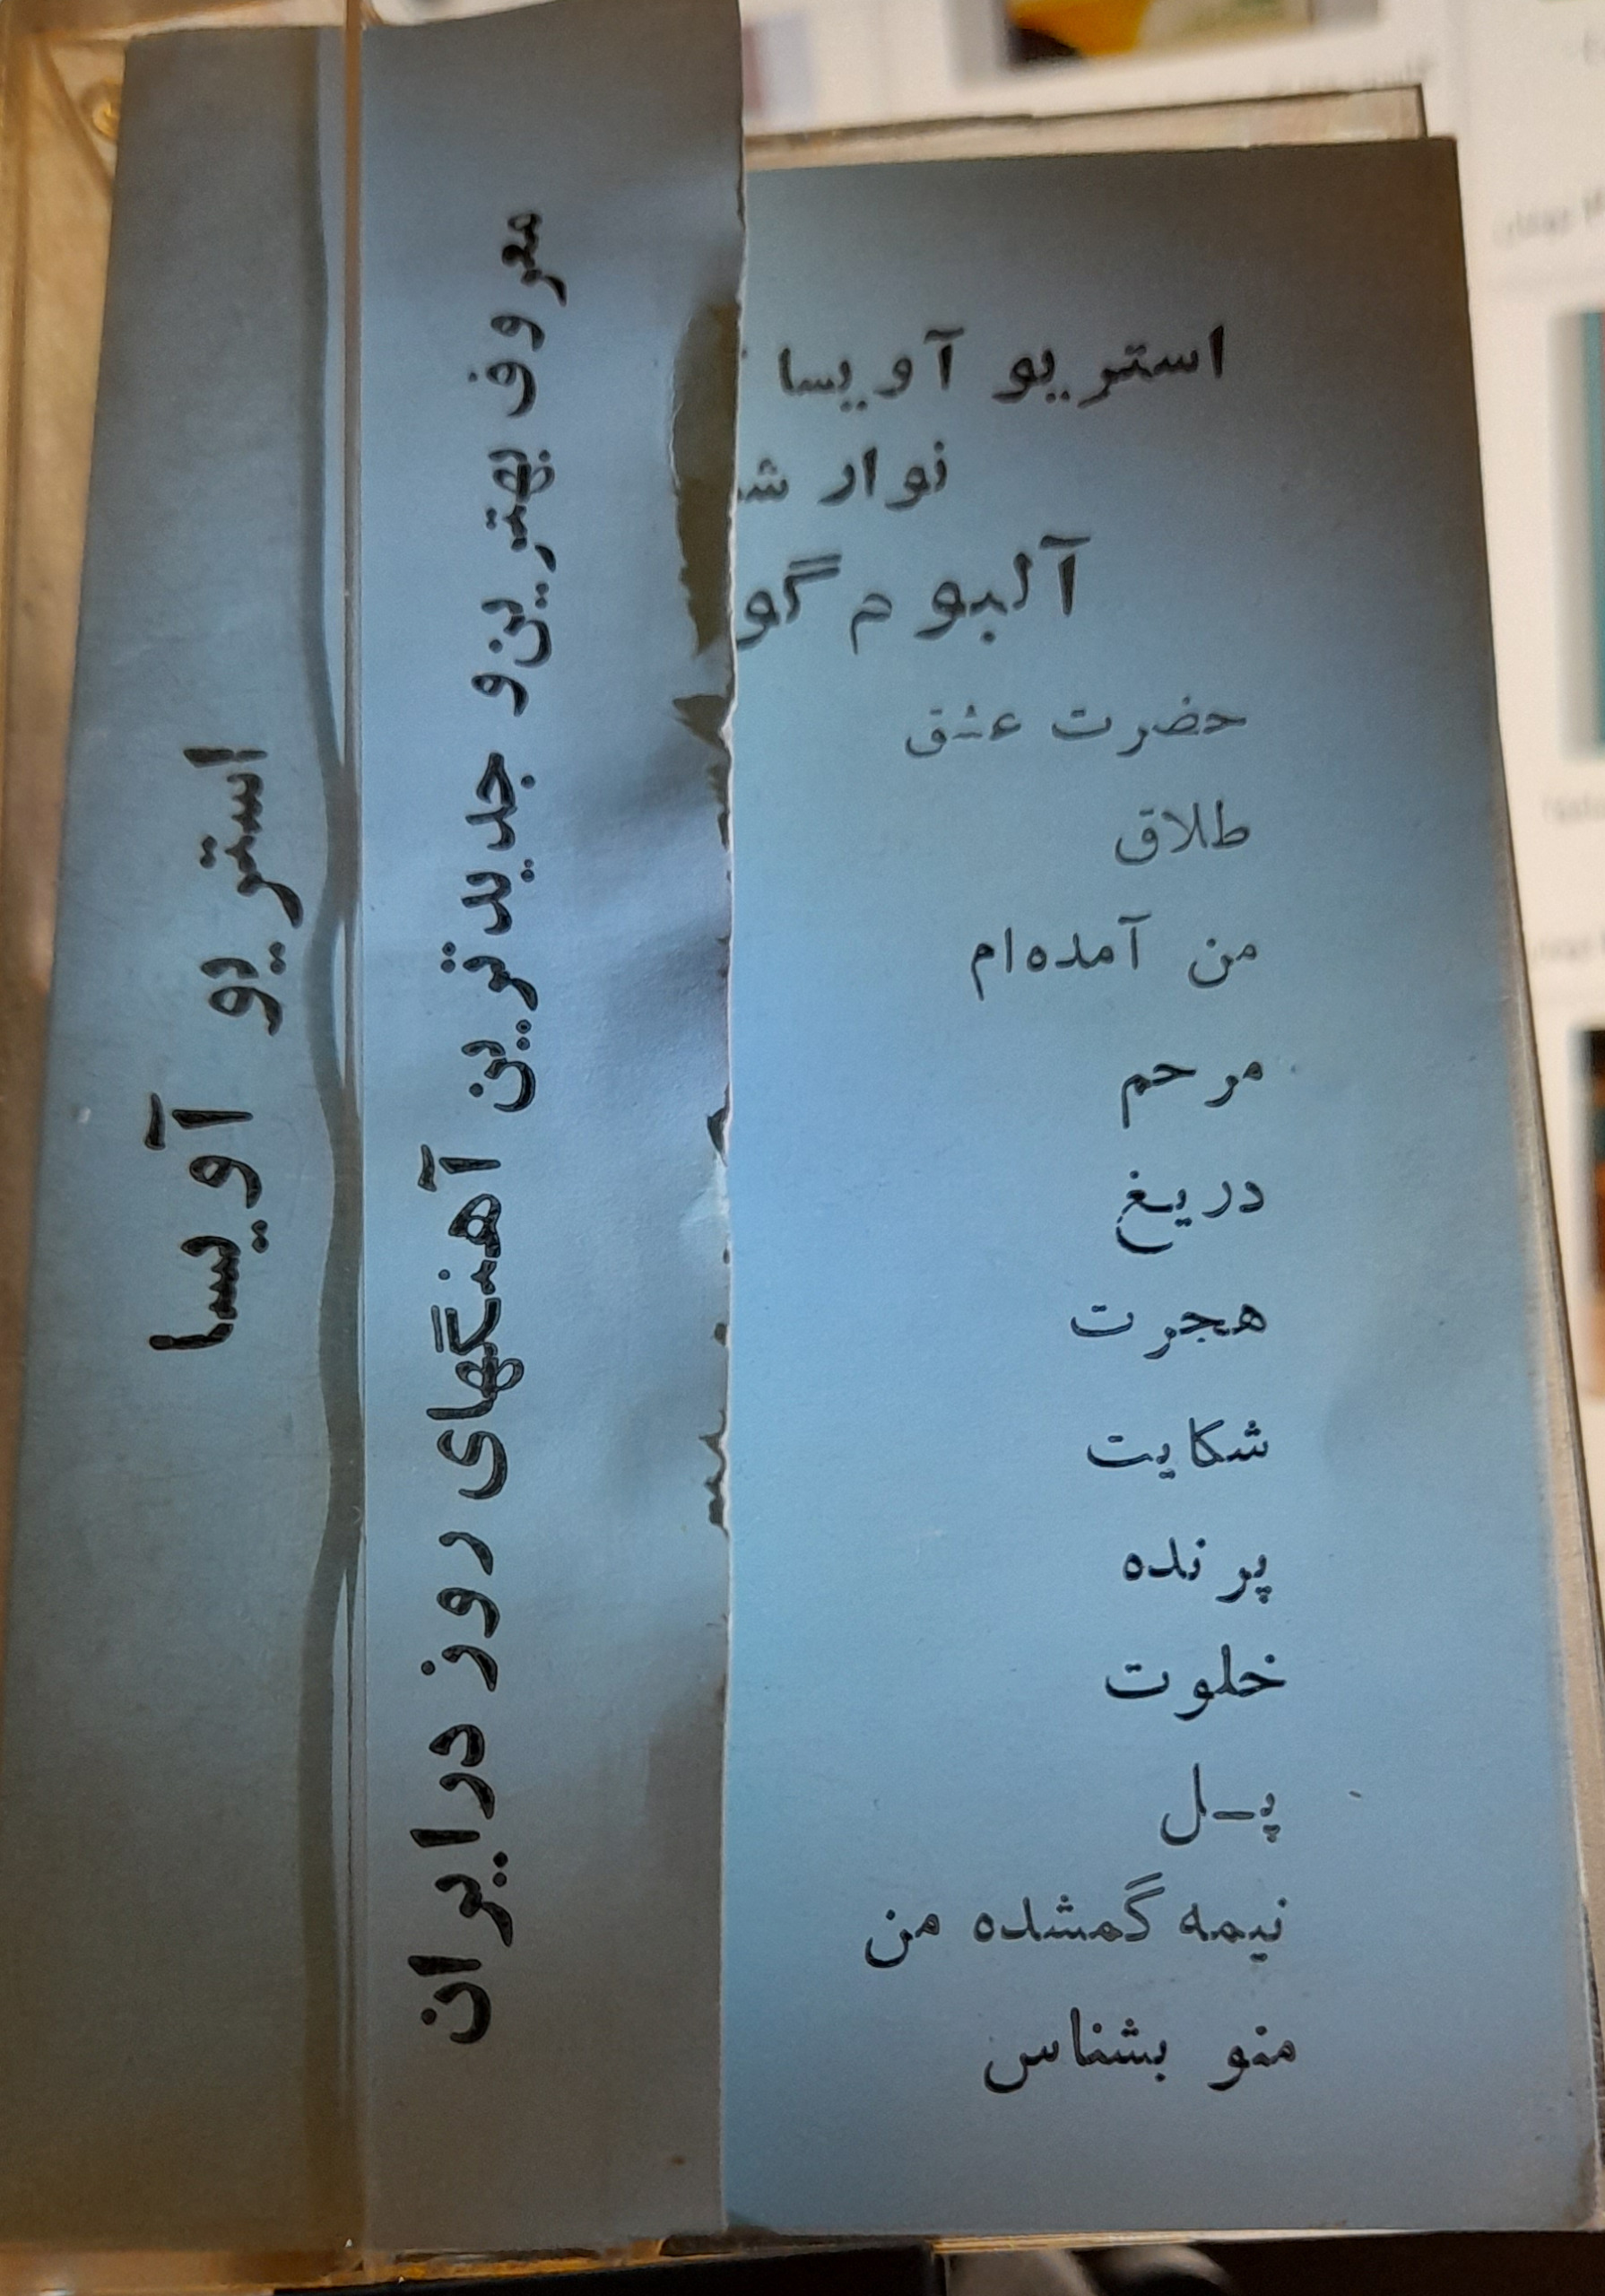 استریو آویسا
معروف بهترین و جدیدترین آهنگهای روز در ایران
استریو آویسا
نوار
آلبوم
حضرت عشق
طلاق
من آمده‌ام
مرحم
دریغ
هجرت
شکایت
پرنده
خلوت
پل
نیمه گمشده من
منو بشناس